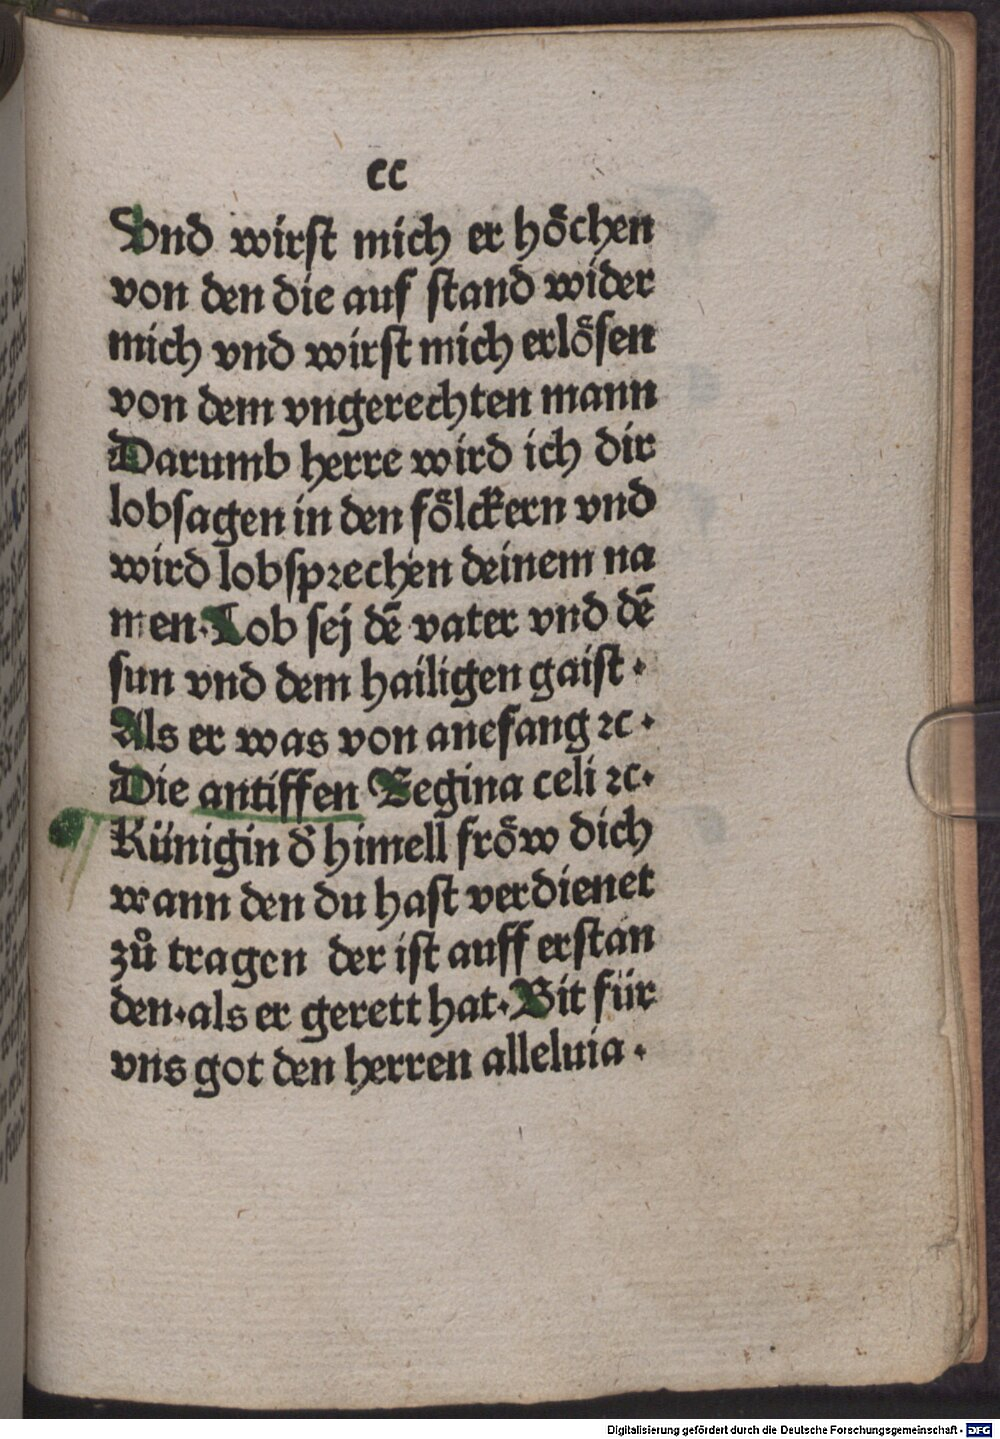 cc
Vnd wirst mich er hoͤchen
von den die auf stand wider
mich vnd wirst mich erloͤsen
von dem vngerechten mann
Darumb herre wird ich dir
lobsagen in den foͤlckern vnd
wird lobsprechen deinem na
men·Lob sej dē vater vnd dē
sun vnd dem hailigen gaist·
Als er was von anefang ꝛc·
Die antiffen Regina celi ꝛc·
Künigin d̕ himell froͤw dich
wann den du hast verdienet
zů tragen der ist auff erstan
den·als er gerett hat·Bit für
vns got den herren alleluia·
Digitalisierung gefördert durch die Deutsche Forschungsgemeinschaft - DFG